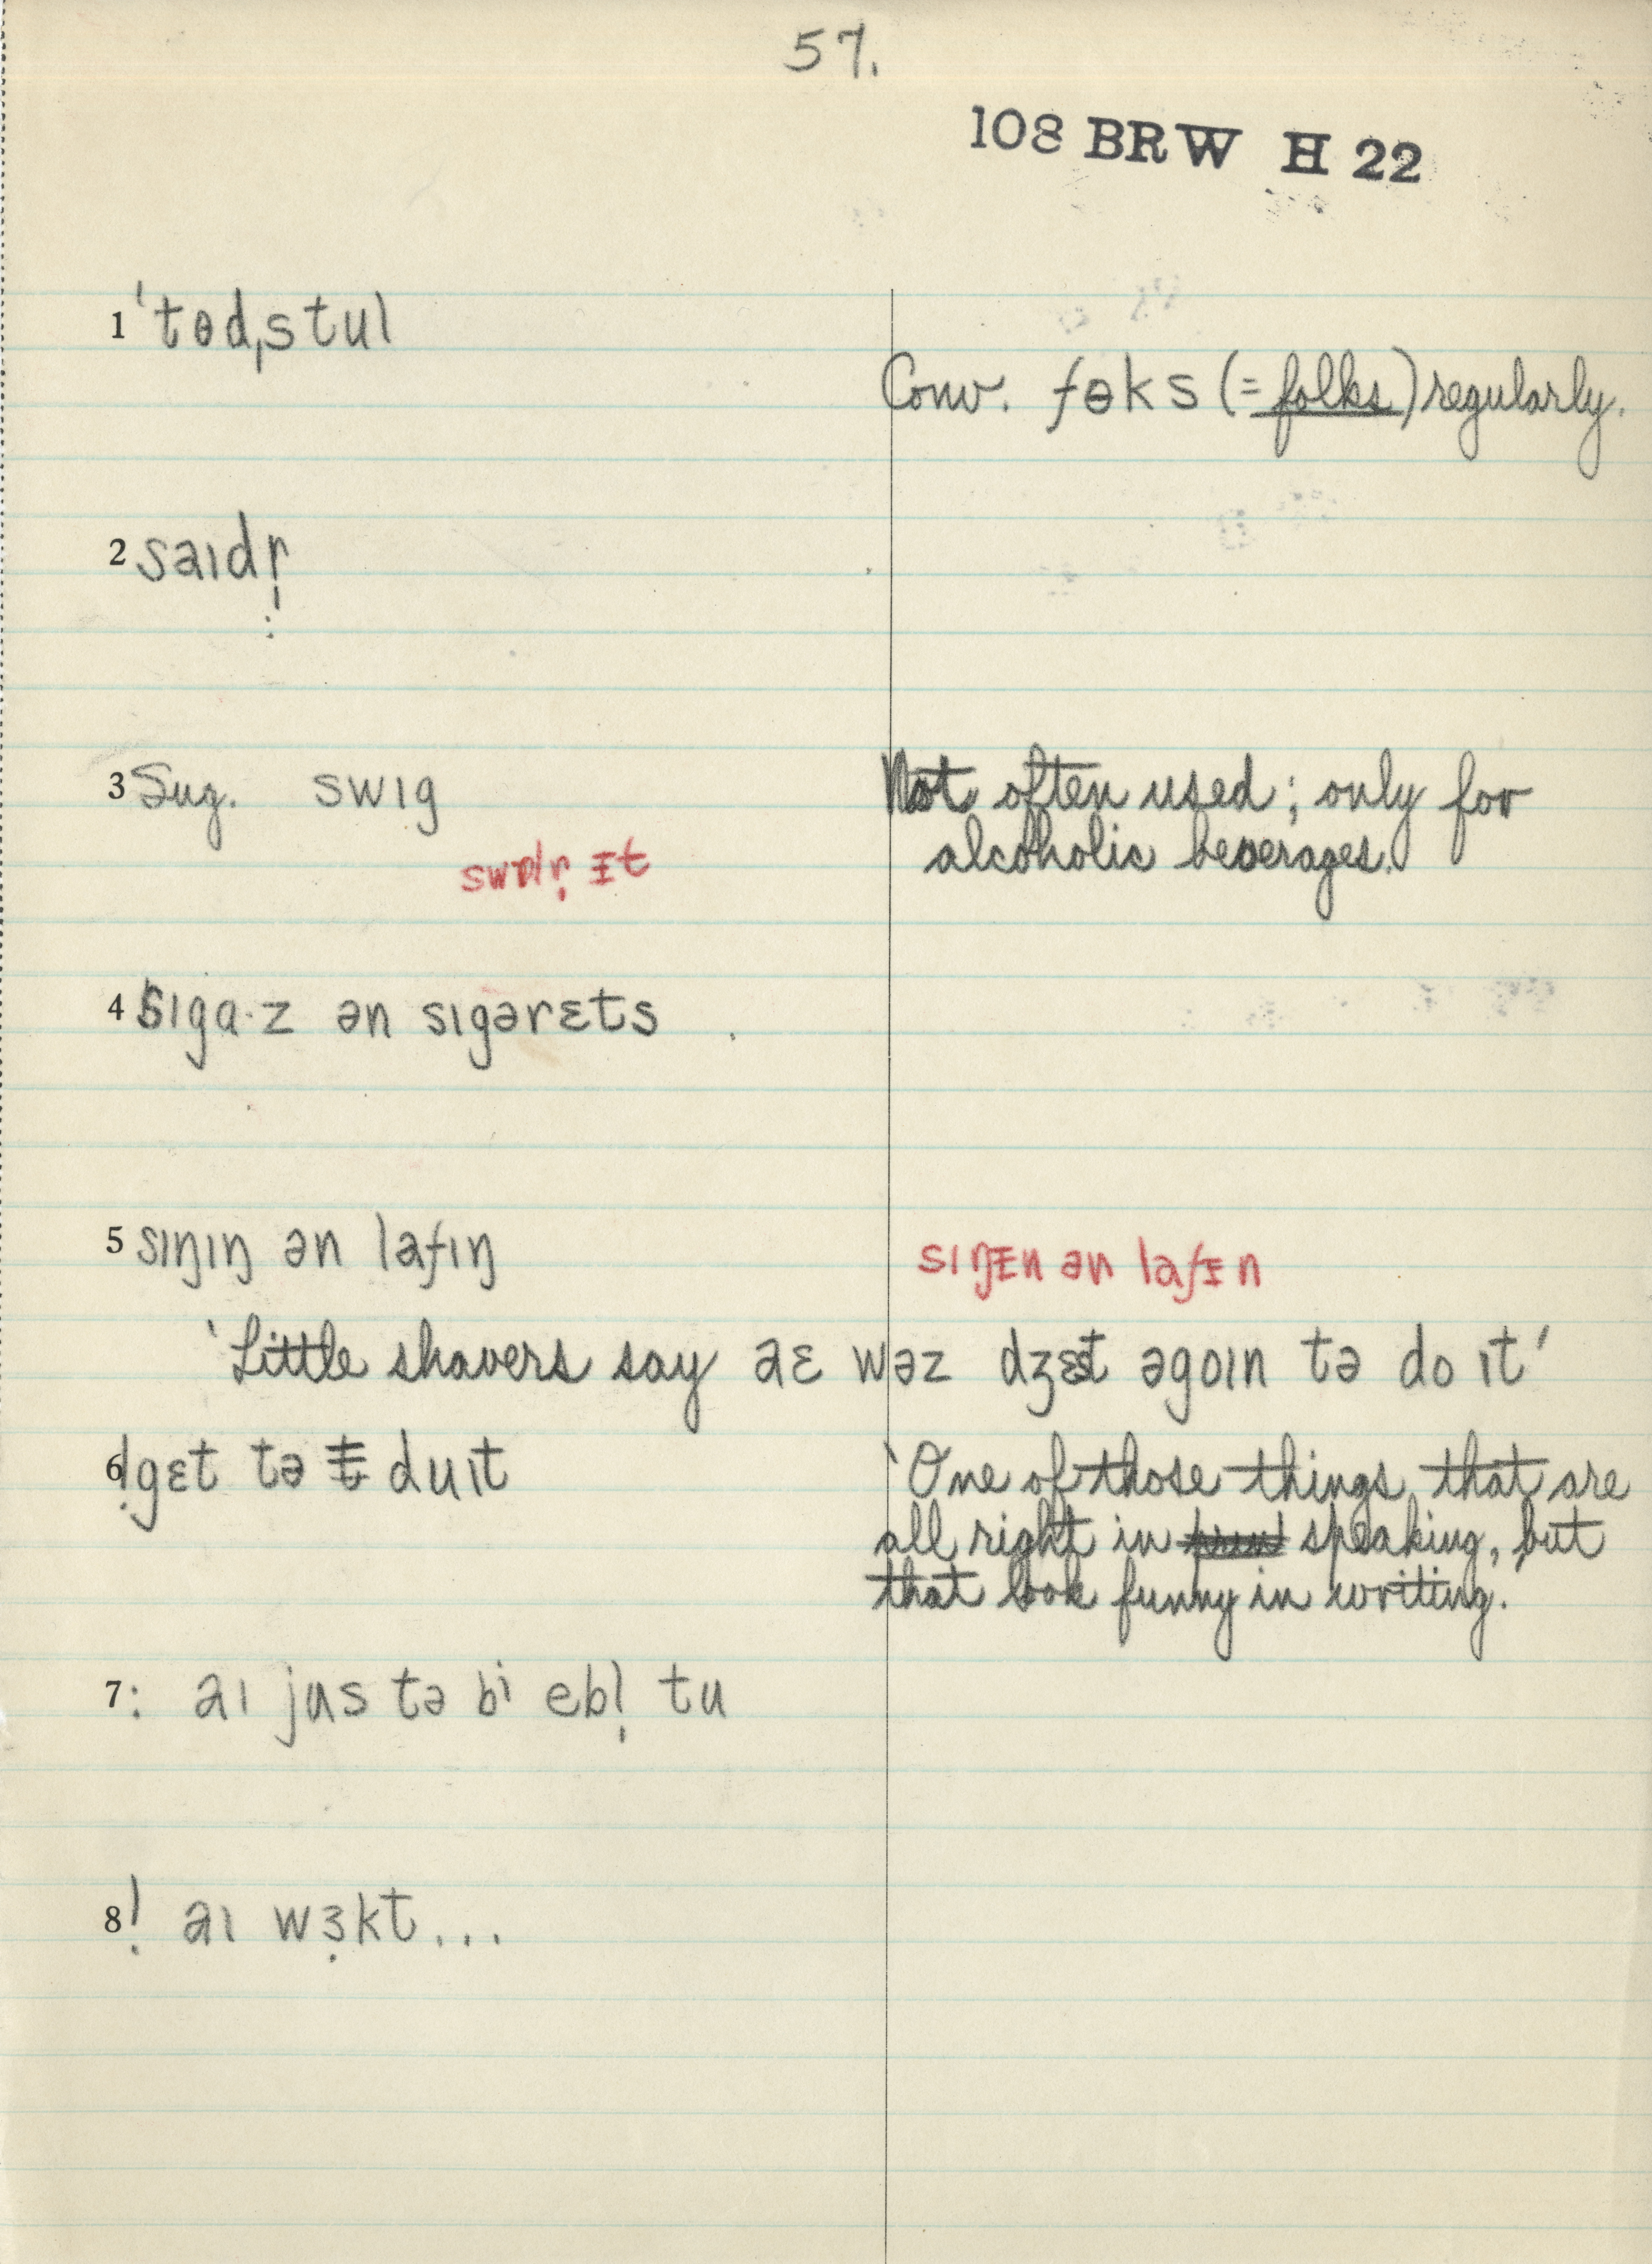 57.
108 BRW H 22
1 ˈtɵdˌstul
Conv. fɵks (= folks) regularly.
2 saɪdr̩
3 Sug. swɪg
Not often used; only for
alcoholic beverages.
ᵻt
4 sɪga·z ən sɪgərɛts
5 sɪŋɪŋ ən lafɪŋ
sɪŋᵻn ən lafᵻn
'Little shavers say aɛ wəz dʒɛst əgoɪn tə do ɪt'
6 ! gɛt tə duɪt
'One of those things that are
all right in speaking, but
that look funny in writing.'
7 : aɪ jus tə bi ebl̩ tu
8 ! aɪ wɜ̣kt...